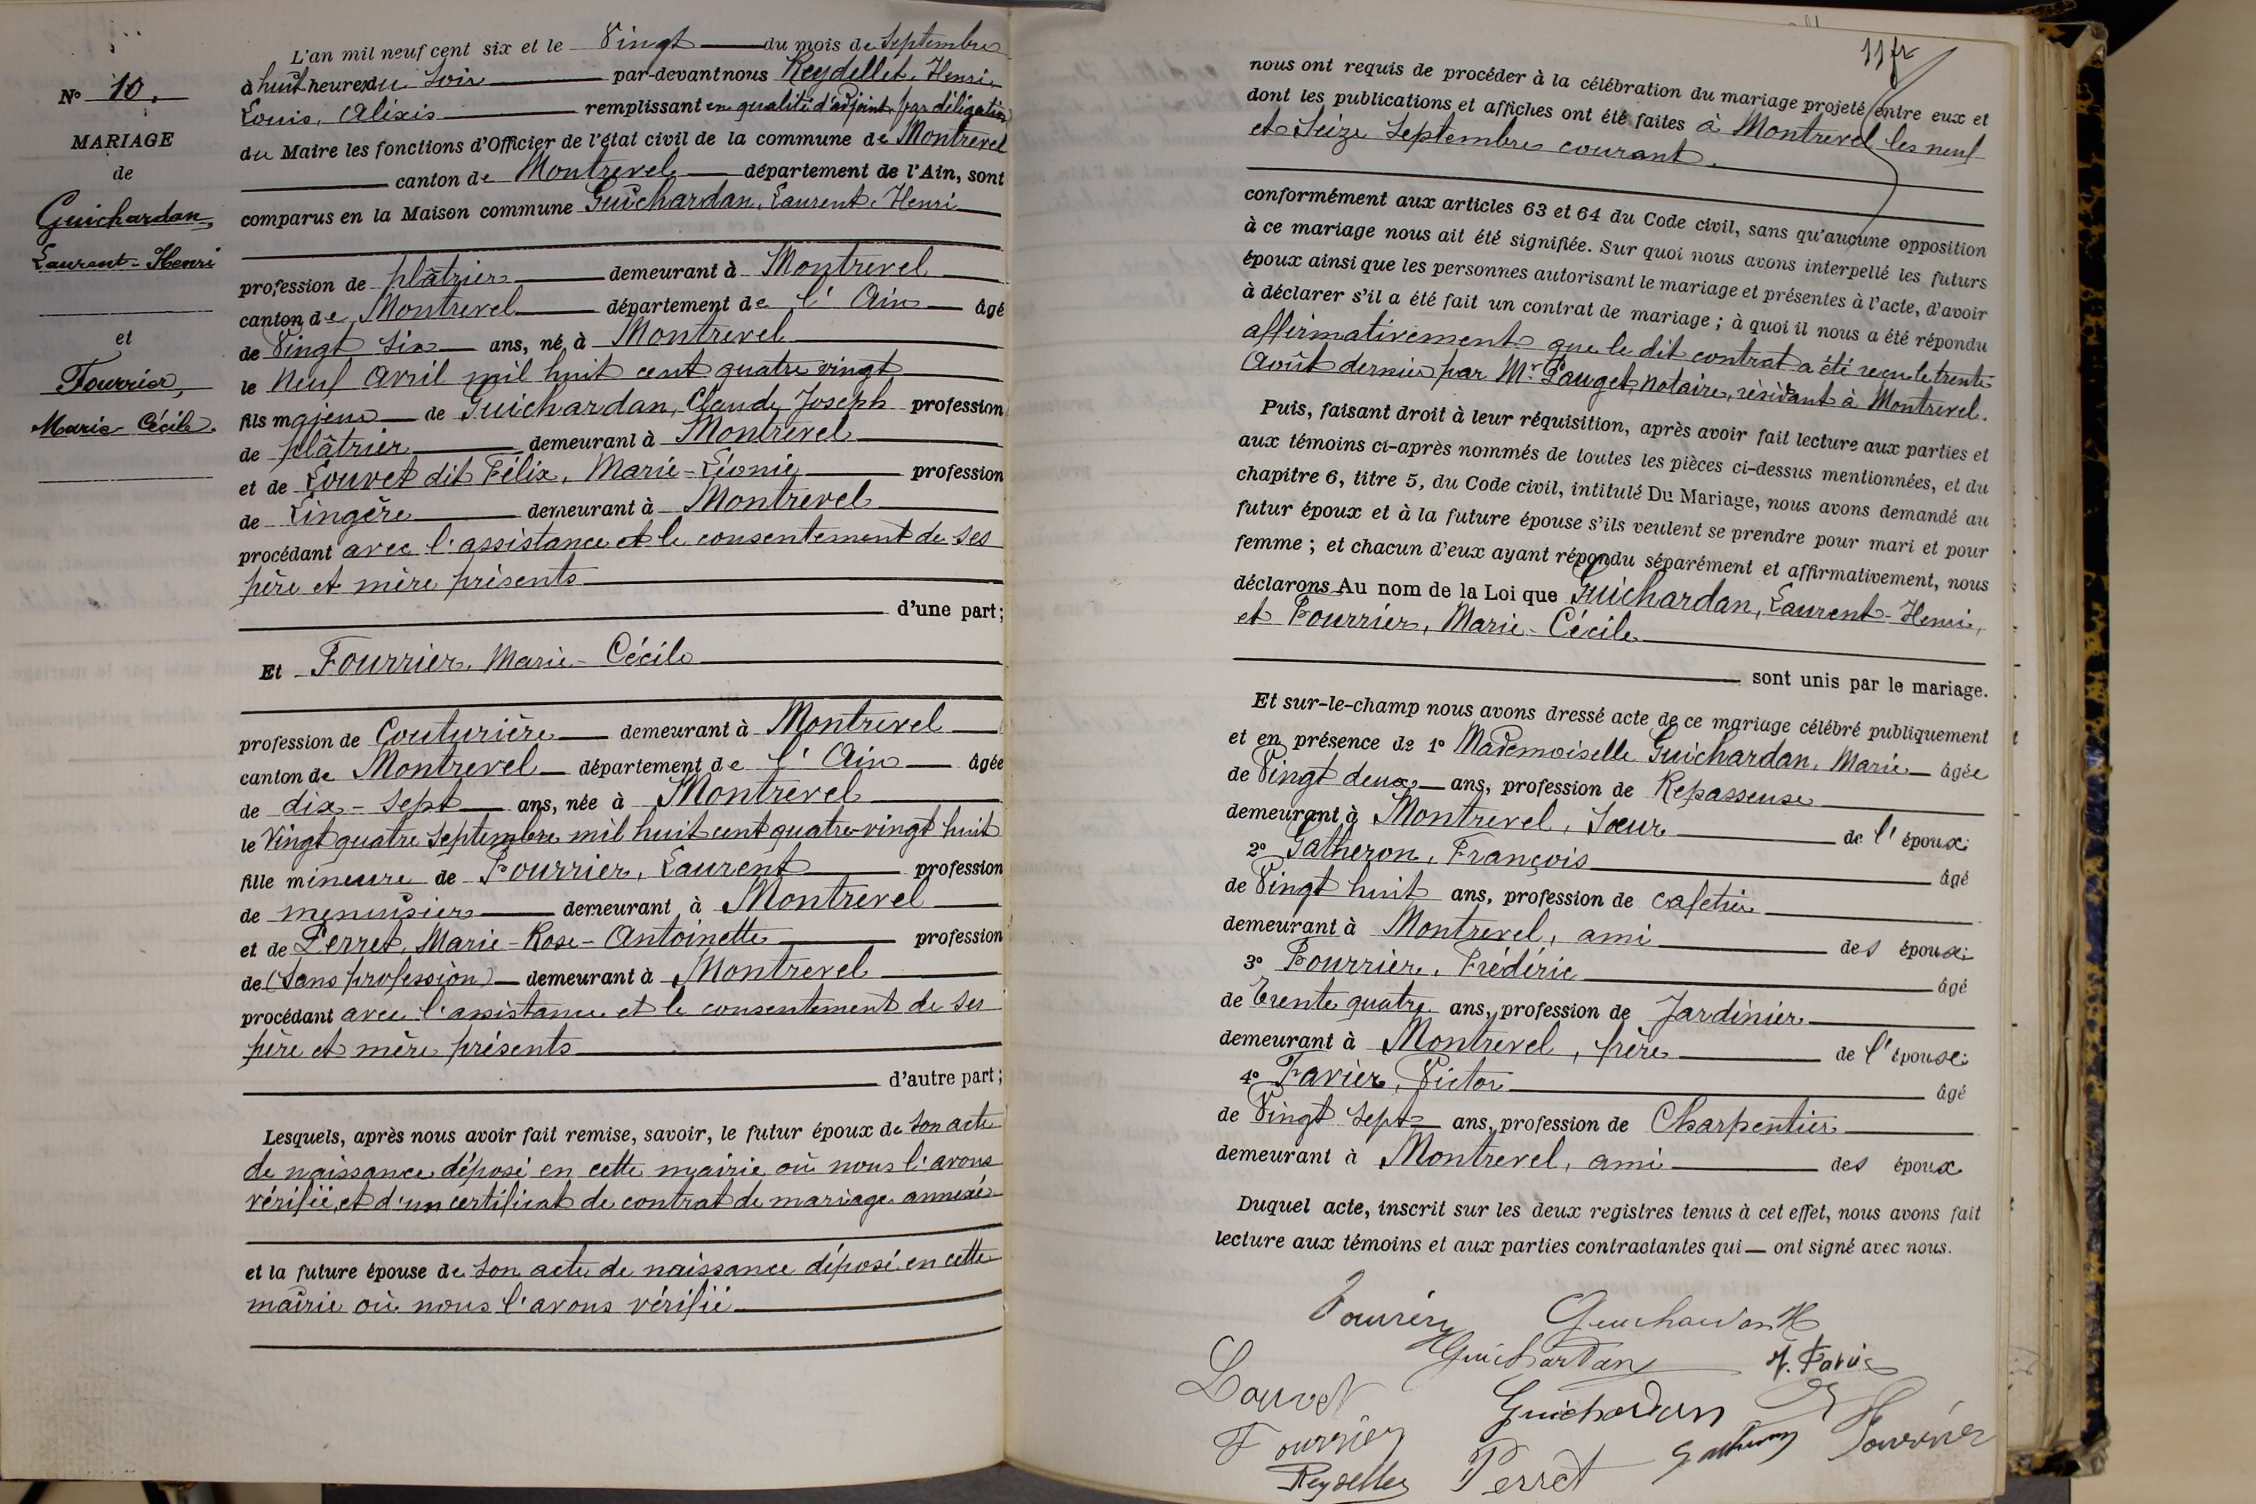 N° 10.
MARIAGE
de
Guichardan,
Laurent-Henri
et
Fourrier,
Marie Cécile.
L'an mil neuf cent six et le Vingt du mois de Septembre
à huit heures du soir par-devant nous Reydellet, Henri
Louis, Alixis remplissant en qualité d'adjoint, par délégation
du Maire les fonctions d'Officier de l'état civil de la commune de Montrevel
canton de Montrevel département de l'Ain, sont
comparus en la Maison commune Guichardan, Laurent, Henri
profession de plâtrier demeurant à Montrevel
canton de Montrevel département de l'Ain âgé
de Vingt six ans, né à Montrevel
le neuf Avril mil huit cent quatre vingt
fils majeur de Guichardan, Claude Joseph profession
de plâtrier demeurant à Montrevel
et de Louvet dit Félix, Marie-Léonie profession
de Lingère demeurant à Montrevel
procédant avec l'assistance et le consentement de ses
père et mère présents
d'une part;
Et Fourrier, Marie-Cécile
profession de Couturière demeurant à Montrevel
canton de Montrevel département de l'Ain âgée
de dix-sept ans, née à Montrevel
le Vingt quatre Septembre mil huit cent quatre-vingt huit
fille mineure de Fourrier, Laurent profession
de menuisier demeurant à Montrevel
et de Perret, Marie-Rose-Antoinette profession
de (Sans profession) demeurant à Montrevel
procédant avec l'assistance et le consentement de ses
père et mère présents
d'autre part;
Lesquels, après nous avoir fait remise, savoir, le futur époux de son acte
de naissance déposé en cette mairie où nous l'avons
vérifié, et d'un certificat de contrat de mariage annexé
et la future épouse de son acte de naissance déposé en cette
mairie où nous l'avons vérifié
11 fr
nous ont requis de procéder à la célébration du mariage projeté entre eux et
dont les publications et affiches ont été faites à Montrevel les neuf
et Seize Septembre courant.
conformément aux articles 63 et 64 du Code civil, sans qu'aucune opposition
à ce mariage nous ait été signifiée. Sur quoi nous avons interpellé les futurs
époux ainsi que les personnes autorisant le mariage et présentes à l'acte, d'avoir
à déclarer s'il a été fait un contrat de mariage; à quoi il nous a été répondu
affirmativement que le dit contrat a été reçu le trente
Août dernier par Mr. Pauget, notaire, résidant à Montrevel.
Puis, faisant droit à leur réquisition, après avoir fait lecture aux parties et
aux témoins ci-après nommés de toutes les pièces ci-dessus mentionnées, et du
chapitre 6, titre 5, du Code civil, intitulé Du Mariage, nous avons demandé au
futur époux et à la future épouse s'ils veulent se prendre pour mari et pour
femme; et chacun d'eux ayant répondu séparément et affirmativement, nous
déclarons Au nom de la Loi que Guichardan, Laurent-Henri,
et Fourrier, Marie-Cécile
sont unis par le mariage.
Et sur-le-champ nous avons dressé acte de ce mariage célébré publiquement
et en présence de 1° Mademoiselle Guichardan, Marie âgée
de Vingt deux ans, profession de Repasseuse
demeurant à Montrevel, Sœur de l'époux;
2° Gatheron, François âgé
de Vingt huit ans, profession de cafetier
demeurant à Montrevel, ami des époux;
3° Fourrier, Frédéric âgé
de Trente quatre ans, profession de Jardinier
demeurant à Montrevel, frère de l'épouse;
4° Favier, Victor âgé
de Vingt sept ans, profession de Charpentier
demeurant à Montrevel, ami des époux
Duquel acte, inscrit sur les deux registres tenus à cet effet, nous avons fait
lecture aux témoins et aux parties contractantes qui — ont signé avec nous.
Guichardan H
Guichardan
Louvet Guichardan
Fourrier Perret Gatheron Fourrier
Reydellet